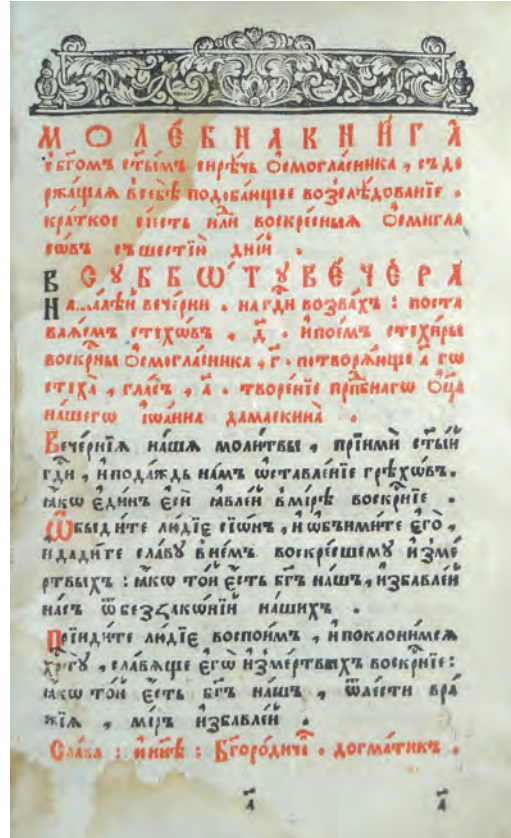 МОЛЕ́БНАКНИ́ГА̀
с̾бг҃омъ ст҃ы́мъ сирѣ́чь Ѻсмогла́сника , съдє
ржа́щая всебѣ̀ подоба́ющее возслѣ́дованїе .
кра́ткоє сїе́сть и҆лѝ воскре́сныѧ Ѻсмигла
совъ съшестїи̑ дни́й .
В СУББѠ́ТУ ВЕ́ЧЕРА
На вече́рни . на гд҃и возва́хъ : поста
влѧ́емъ стухѡ́въ , д҃ . и҆пое́мъ стєхи́ры
воскр҃ны Ѻсмогла́сника , г҃ . потворѧ́юще а҃ гѡ
стиха̀ , гла́съ , а҃ . творе́нїе прп҃бнагѡ ѻ҆ц҃а
на́шегѡ і҆ѡа́нна дамаскина̀ .
Вече́рнїѧ на́шѧ моли́твы , прїимѝ ст҃ы́й
гд҃и , и҆пода́ждь на́мъ ѡ҆ставле́нїе грѣхѡ́въ .
ꙗ҆́кѡ є҆ди́нъ є҆сѝ ꙗ҆вле́й вми́рѣ воскр҃нїе .
Ѡ҆быди́те лю́дїє сїѡ́нъ , и҆ѡ҆б̾ими́те є҆го̀ ,
и҆дади́те сла́ву вне́мъ воскре́сшему и҆зме́
ртвыхъ : ꙗ҆́кѡ то́й є҆́сть бг҃ъ на́шъ , и҆збавле́й
на́съ ѿбеззако́нїй на́шихъ .
Прїиди́те лю́дїє воспои́мъ , и҆поклони́мсѧ
хр҃ту̀ , сла́вѧще є҆гѡ̀ и҆зме́ртвыхъ воскр҃нїе :
ꙗ҆́кѡ то́й є҆́сть бг҃ъ на́шъ , ѿле́сти вра́
жїѧ , ми́ръ и҆збавле́й .
Сла́ва : и҆ны́нѣ : Бг҃оро́диче̑ . догма́тикъ .
а҃ а҃